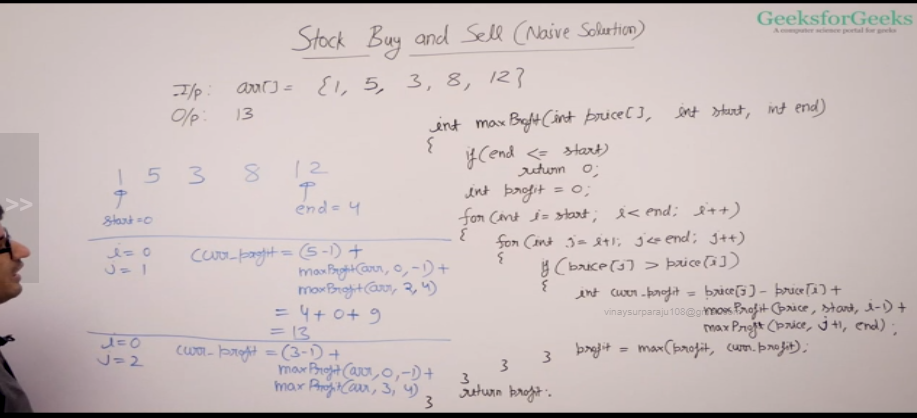 GeeksforGeeks
A computer science portal for geeks
Stock Buy and Sell (Naive Solution)
I/p: arr[] = {1, 5, 3, 8, 12}
O/p: 13
1 5 3 8 12
start=0
end=4
i=0
j=1
curr_profit = (5-1) +
maxProfit(arr, 0, -1) +
maxProfit(arr, 2, 4)
= 4+0+9
= 13
i=0
j=2
curr_profit = (3-1) +
maxProfit(arr, 0, -1) +
maxProfit(arr, 3, 4)
int maxProfit(int price[], int start, int end)
{
if(end <= start)
return 0;
int profit = 0;
for(int i=start; i<end; i++)
{
for(int j=i+1; j<=end; j++)
{
if(price[j] > price[i])
{
int curr_profit = price[j] - price[i] +
maxProfit(price, start, i-1) +
maxProfit(price, j+1, end);
profit = max(profit, curr_profit);
}
}
}
return profit;
}
>>